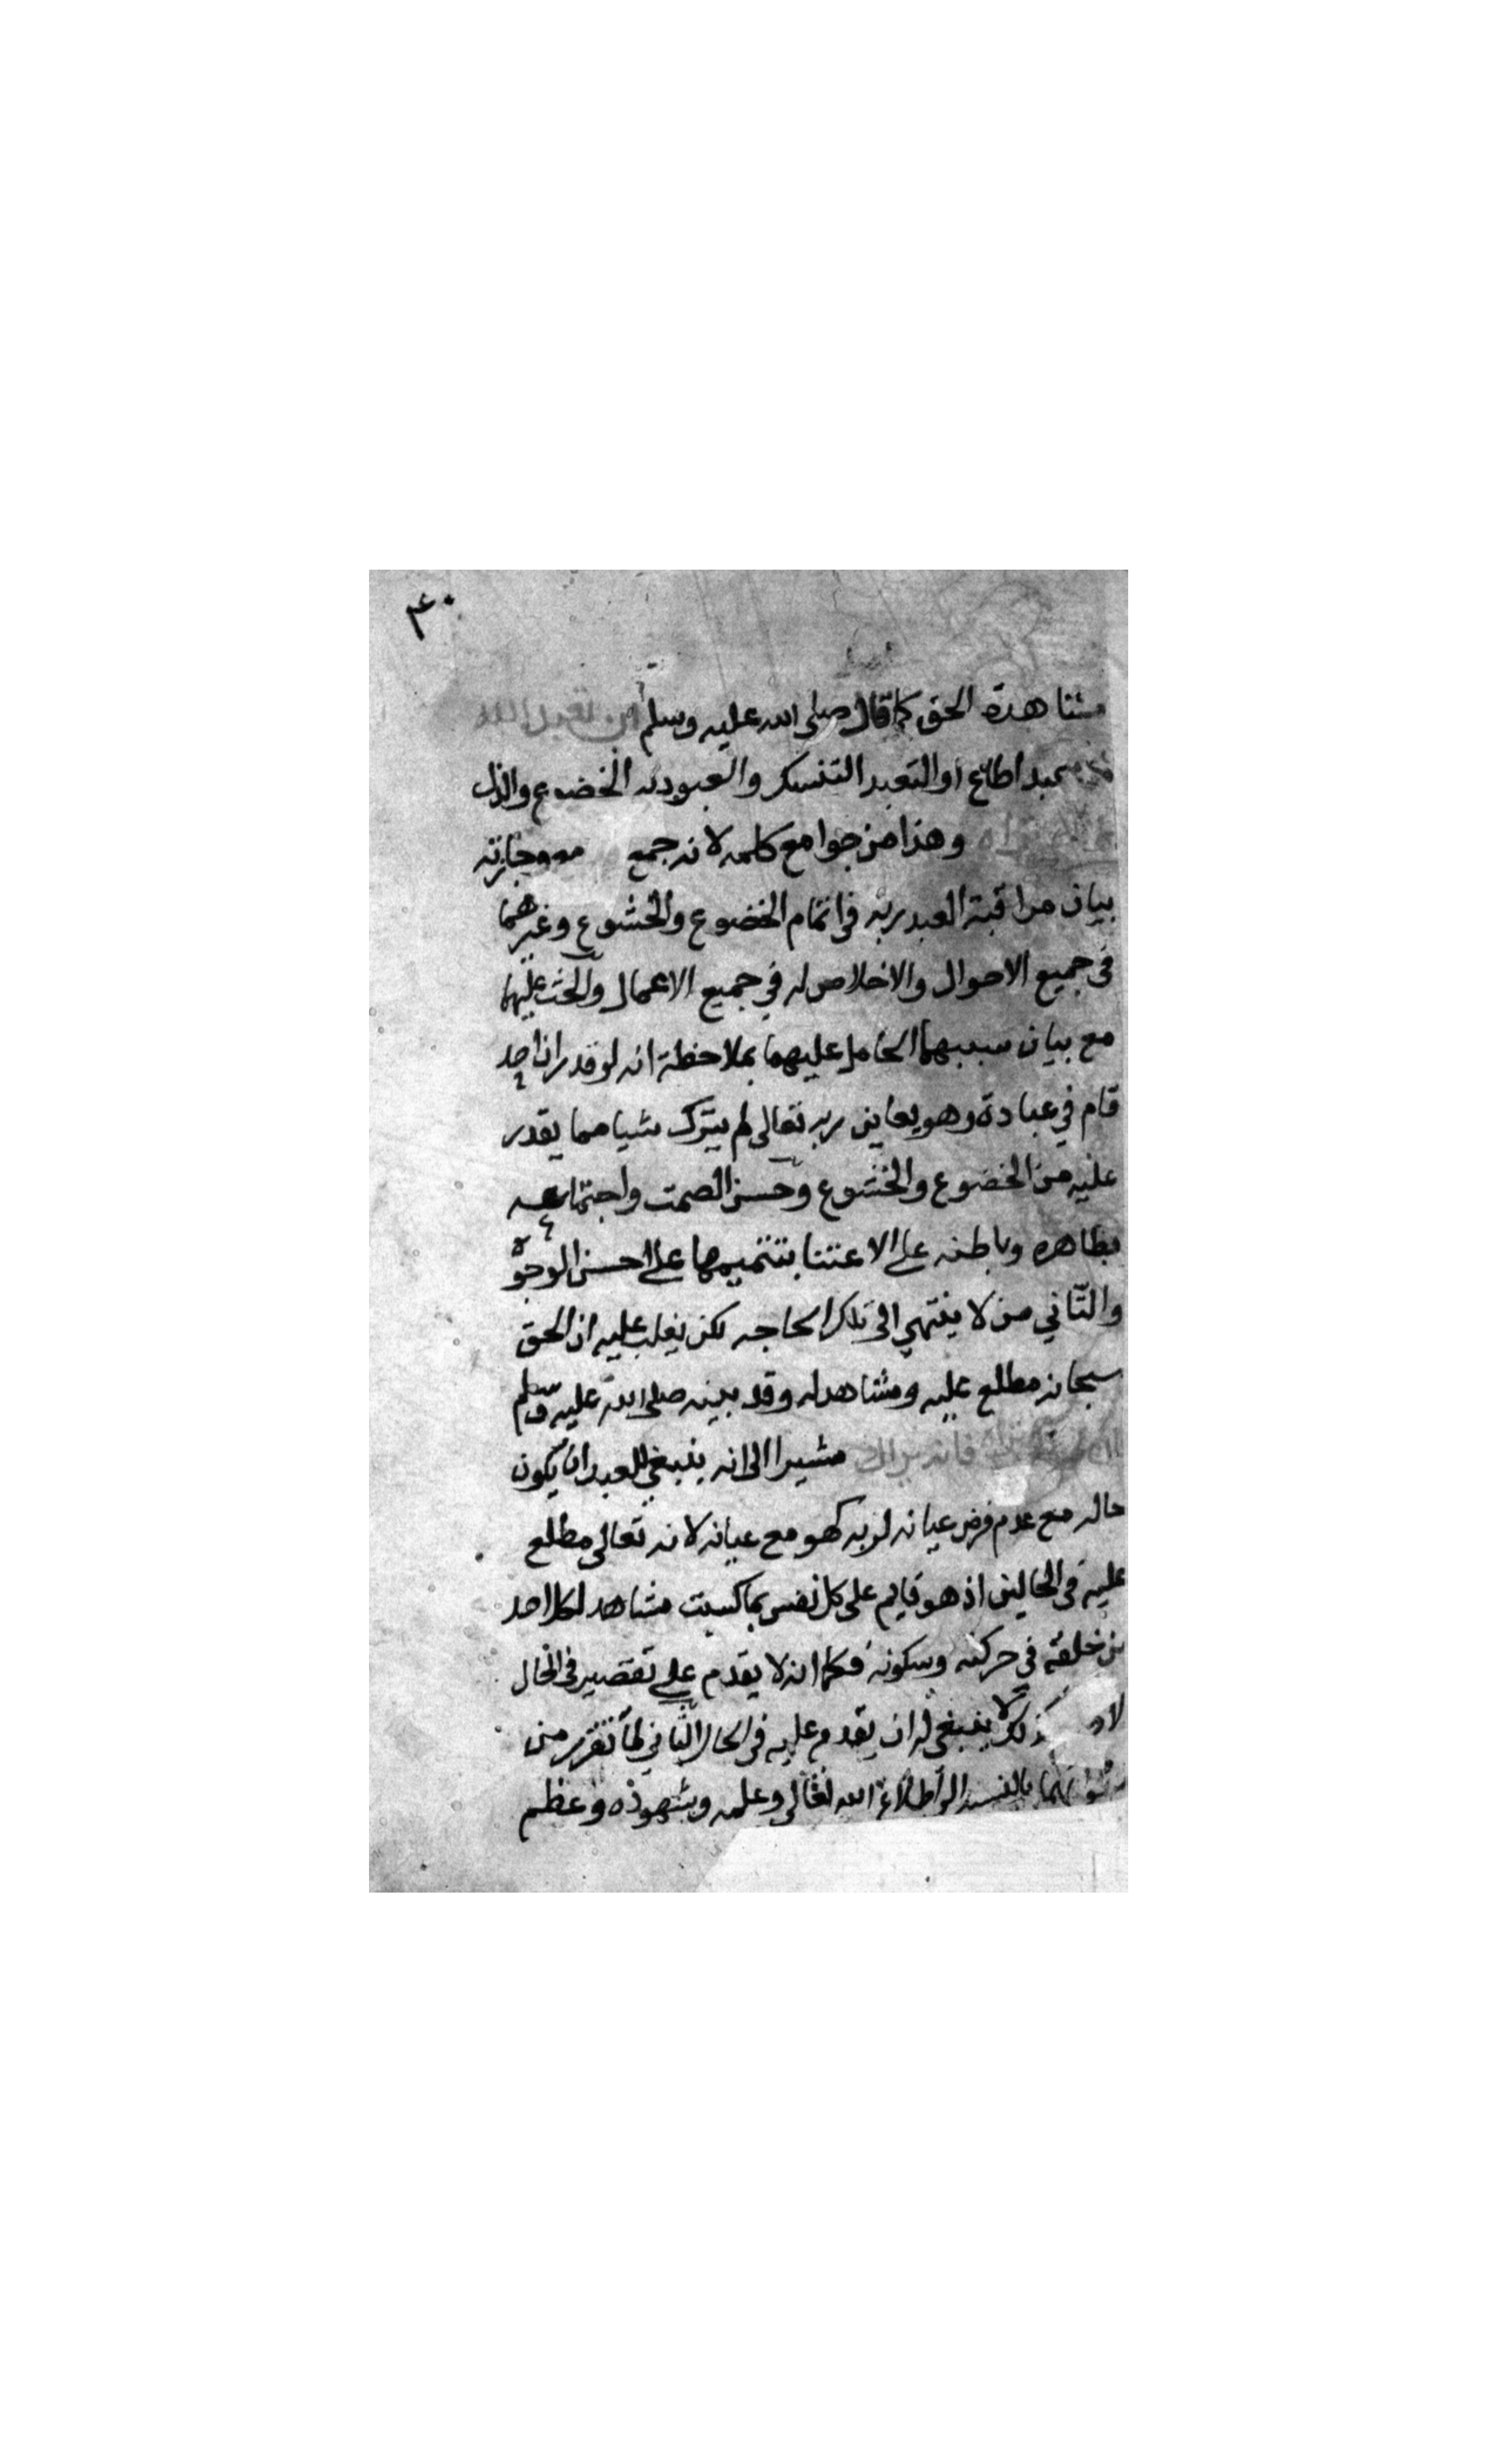 ٣٠
مشاهدة الحق كما قال صلى الله عليه وسلم ان تعبد الله
اطاع او التعبد التنسك والعبودية الخضوع والذل
وهذا من جوامع كلمه لانه جمع مع وجازته
بيان مراقبة العبد ربه في اتمام الخضوع والخشوع وغيرهما
في جميع الاحوال والاخلاص له في جميع الاعمال والحث عليهما
مع بيان سببهما الحامل عليهما بملاحظة انه لو قدر ان احد
قام في عبادة وهو يعاين ربه تعالى لم يترك شيا مما يقدر
عليه من الخضوع والخشوع وحسن الصمت واجتماعه
بظاهره وباطنه على الاعتنا بتتميمها على احسن الوجوه
والثاني من لا ينتهي الى تلك الحاجه لكن يغلب عليه ان الحق
سبحانه مطلع عليه ومشاهد له وقد بينه صلى الله عليه وسلم
فانه يراك مشيرا الى انه ينبغي للعبد ان يكون
حاله مع عدم فرض عيانه لربه كهو مع عيانه لانه تعالى مطلع
عليه في الحالين اذ هو قايم على كل نفس بما كسبت مشاهد لكل احد
من خلقه في حركته وسكونه فكما انه لا يقدم على تقصير في الحال
لا ينبغي له ان يقدم عليه في الحال الثاني لما تقرر من
بالنسبة الى اطلاع الله تعالى وعلمه وشهوده وعظم